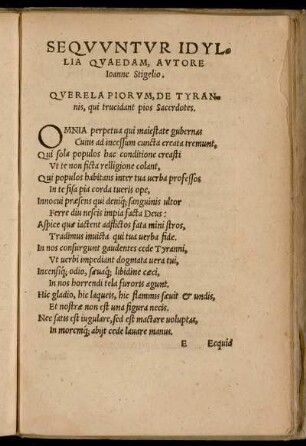 SEQVVNTVR IDYL-
LIA QVAEDAM, AVTORE
Ioanne Stigelio.
QVERELA PIORVM, DE TYRAN-
nis, qui trucidant pios Sacerdotes.
OMNIA perpetua qui maiestate gubernas
Cuius ad incessum cuncta creata tremunt,
Qui sola populos hac conditione creasti
Vt te non ficta relligione colant,
Qui populos habitans inter tua verba professos
In te fisa pia corda tueris ope,
Innocui præsens qui deniq; sanguinis ultor
Ferre diu nescis impia facta Deus:
Aspice quæ iactent adflictos fata ministros,
Tradimus inuicta qui tua verba fide.
In nos consurgunt gaudentes cede Tyranni,
Vt verbi impediant dogmata vera tui,
Incensiq; odio, sæuaq; libidine cæci,
In nos horrendi tela furoris agunt.
Hic gladio, hic laqueis, hic flammis sæuit & undis,
Et nostræ non est una figura necis.
Nec satis est iugulare, sed est mactare voluptas,
In moremq; abijt cede lauare manus.
E Ecquid